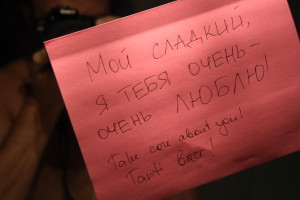 Мой сладкий,
я тебя очень-
очень ЛЮБЛЮ!
Take care about you!
Tanti baci!